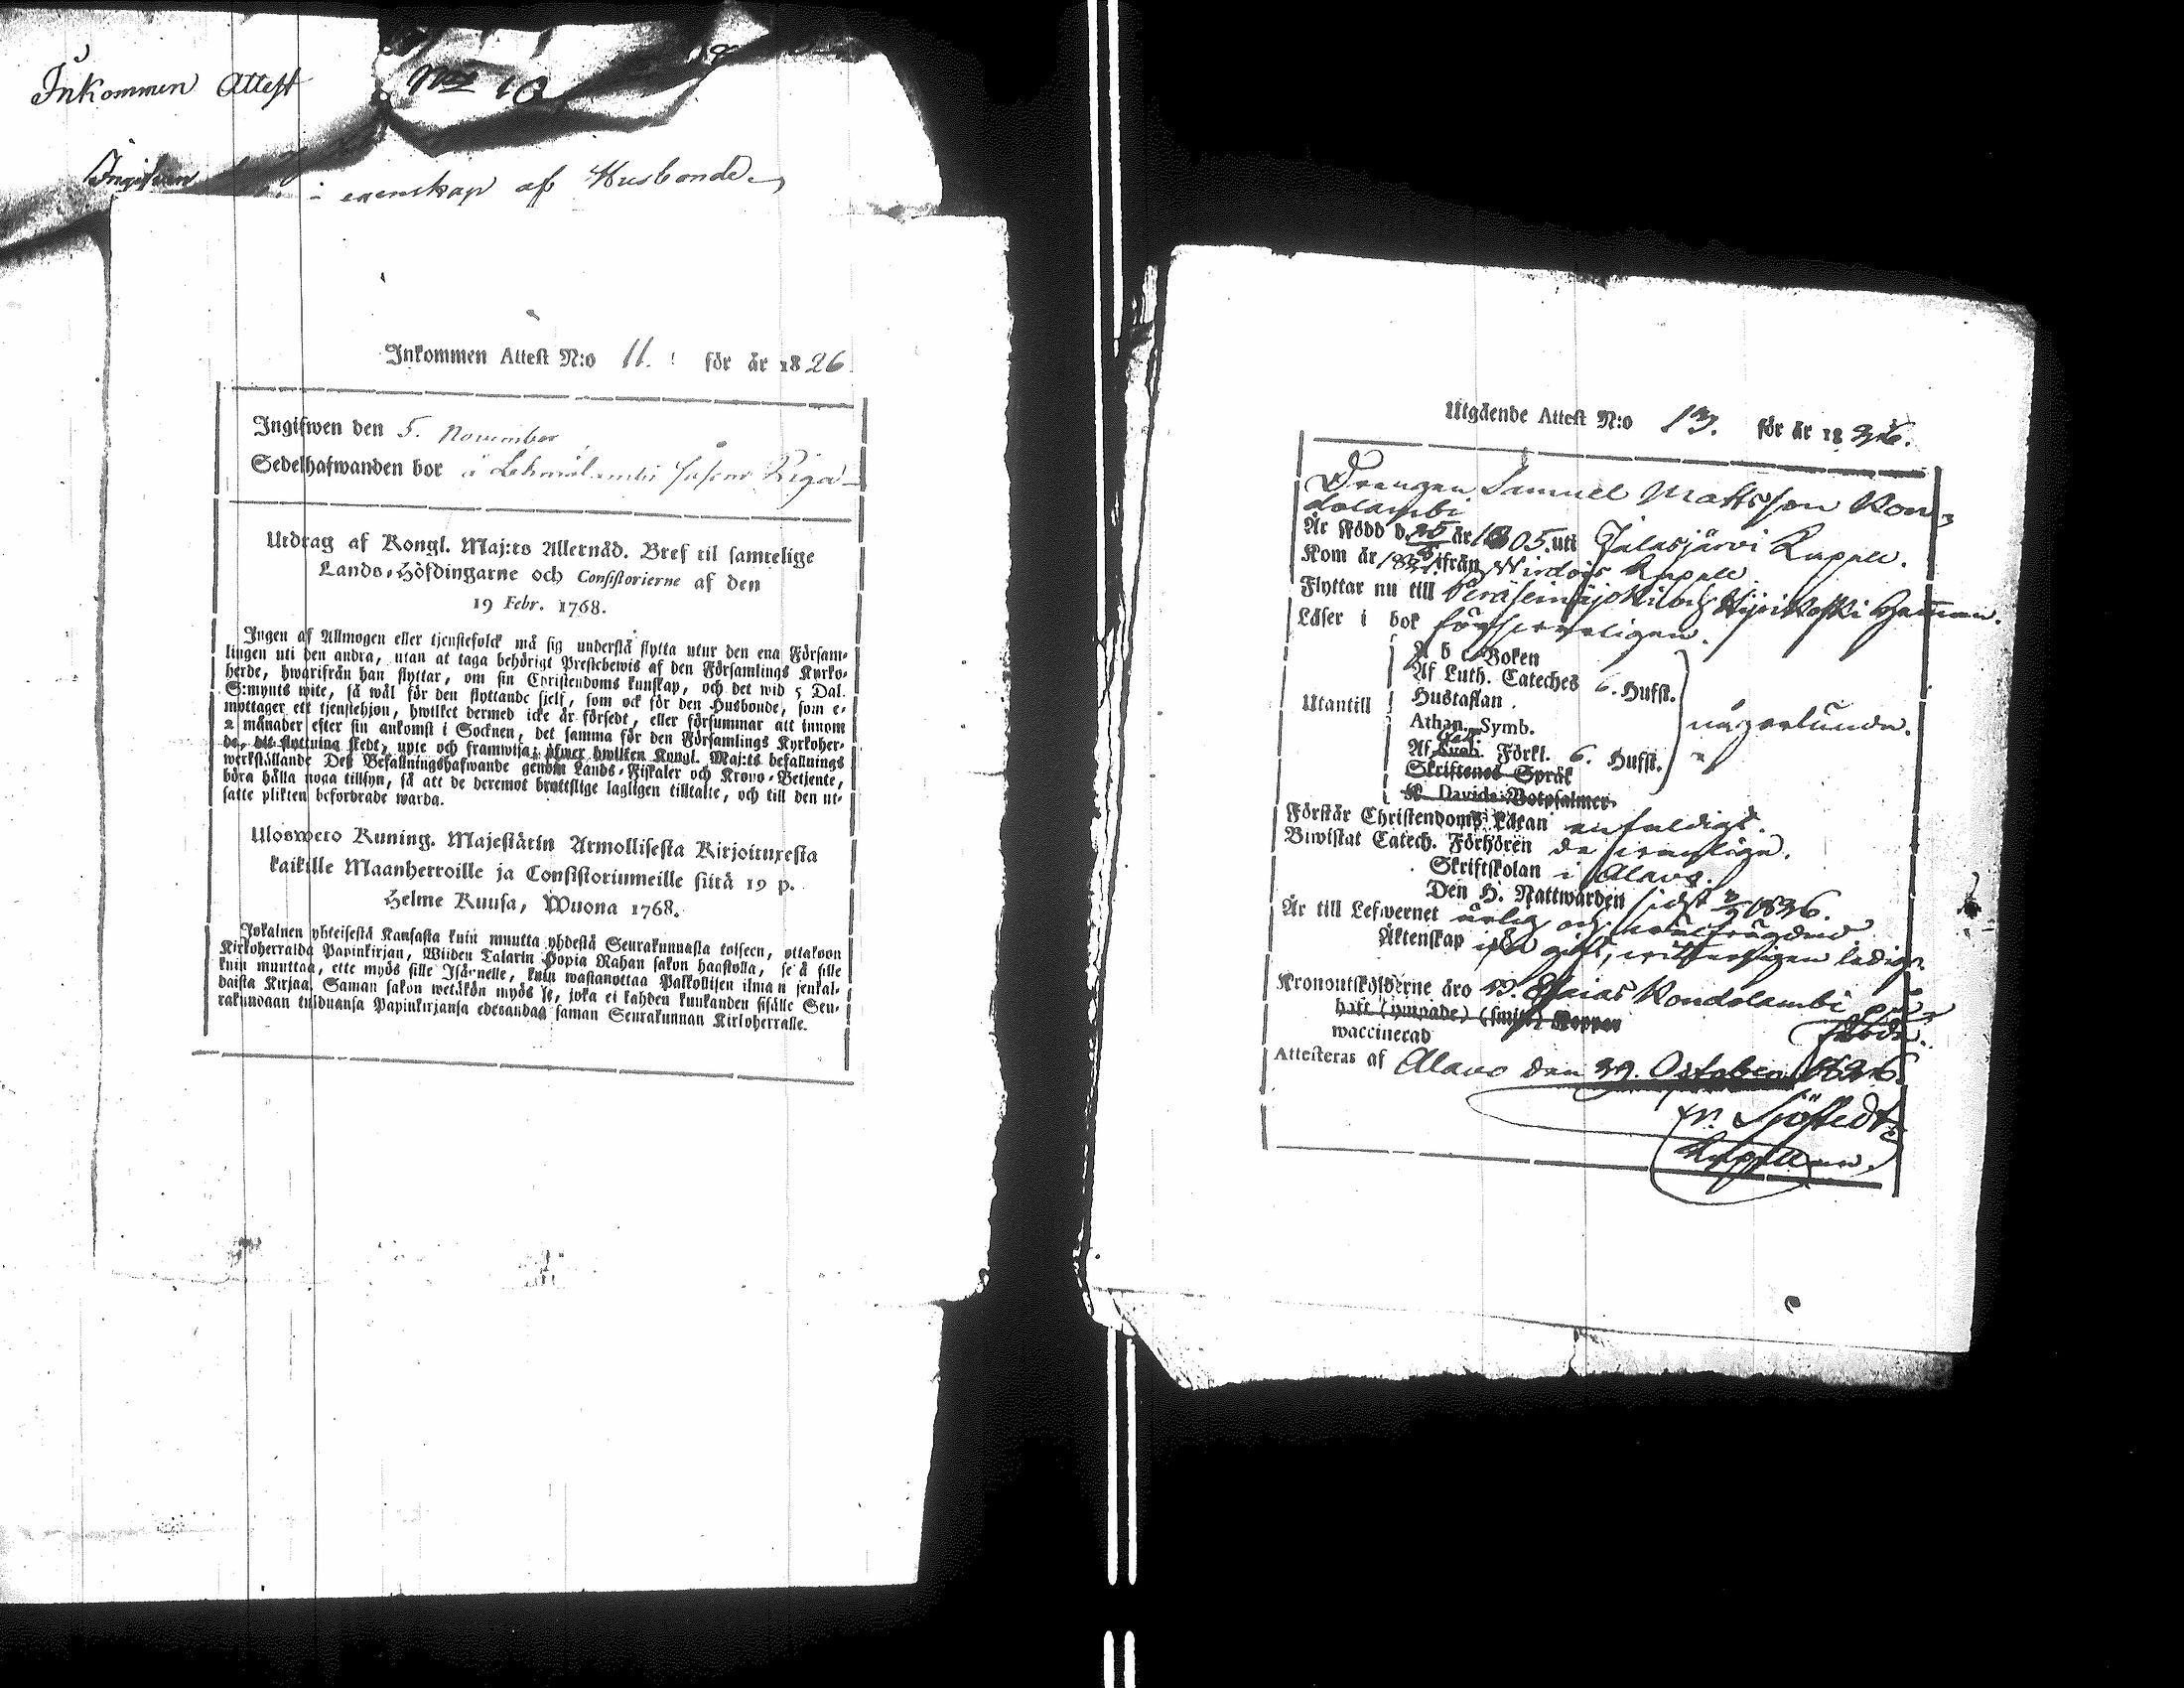 Inkommen Attest No 10
Ingifwen
i egenskap af Husbonde
Inkommen Attest N:o 11. för år 1826
Ingifwen den 5. November
Sedelhafwanden bor å
Utdrag af Kongl. Maj:ts Allernåd. Bref til samtelige
Lands-Höfdingarne och Consistorierne af den
19 Febr. 1768.
Ingen af Allmogen eller tjenstefolck må sig understå flytta utur den ena Försam-
lingen uti den andra, utan at taga behörigt Prestebewis af den Församlings Kyrko-
herde, hwarifrån han flyttar, om sin Christendoms kunskap, och det wid 5 Dal.
S:mynts wite, så wäl för den flyttande sjelf, som ock för den Husbonde, som e-
mottager ett tjenstehjon, hwilket dermed icke är försedt, eller försummar att innom
2 månader efter sin ankomst i Socknen, det samma för den Församlings Kyrkoher-
de, dit flyttning skedt, upte och framwisa; öfwer hwilken Kongl. Maj:ts befallnings
werkställande Dess Befallningshafwande genom Lands-Fiskaler och Krono-Betjente,
böra hålla noga tillsyn, så att de deremot brottslige lagligen tilltalte, och till den ut-
satte plikten befordrade warda.
Ulosweto Kuning. Majestätin Armollisesta Kirjoituxesta
kaikille Maanherroille ja Consistoriumeille siitä 19 p.
Helme Kuusa, Wuona 1768.
Jokainen yhteisestä Kansasta kuin muutta yhdestä Seurakunnasta toiseen, ottakoon
Kirkoherralda Papinkirjan, Wiiden Talarin Hopia Rahan sakon haastolla, se ä sille
kuin muuttaa, ette myös sille Isännelle, kuin wastanottaa Palkollisen ilman senkal-
daista Kirjaa. Saman sakon wetäkön myös se, joka ei kahden kuukanden sisälle Seu-
rakundaan tulduansa Papinkirjansa edesanda saman Seurakunnan Kirkoherralle.
Utgående Attest N:o 13. för år 1826.
Drengen Samuel Mattsson Kon-
dolambi
Är Född d. 25 år 1805. uti Jalasjärvi Kapell.
Kom år ifrån Wirdois Kapell
Flyttar nu till Peräseinäjoki
Läser i bok försvarligen.
A b c Boken
Af Luth. Cateches 6. Hufst.
Utantill Hustaflan
Athan. Symb. någorlunda.
Af Luth. Förkl. 6. Hufst.
Skriftenes Språk
K. Davids Botpsalmer
Förstår Christendoms Läran enfaldigt.
Biwistat Catech. Förhören
Skriftskolan i Alavo.
Den H. Nattwarden sidst 1826.
Är till Lefwernet ärlig och
Äktenskap ledig.
Kronoutskylderne äro Esaias Kondolambi
haft (ympade) (smitt) Koppor
waccinerad
Attesteras af Alavo den 29. October 1826.
Sjöstedt
Kapellan.